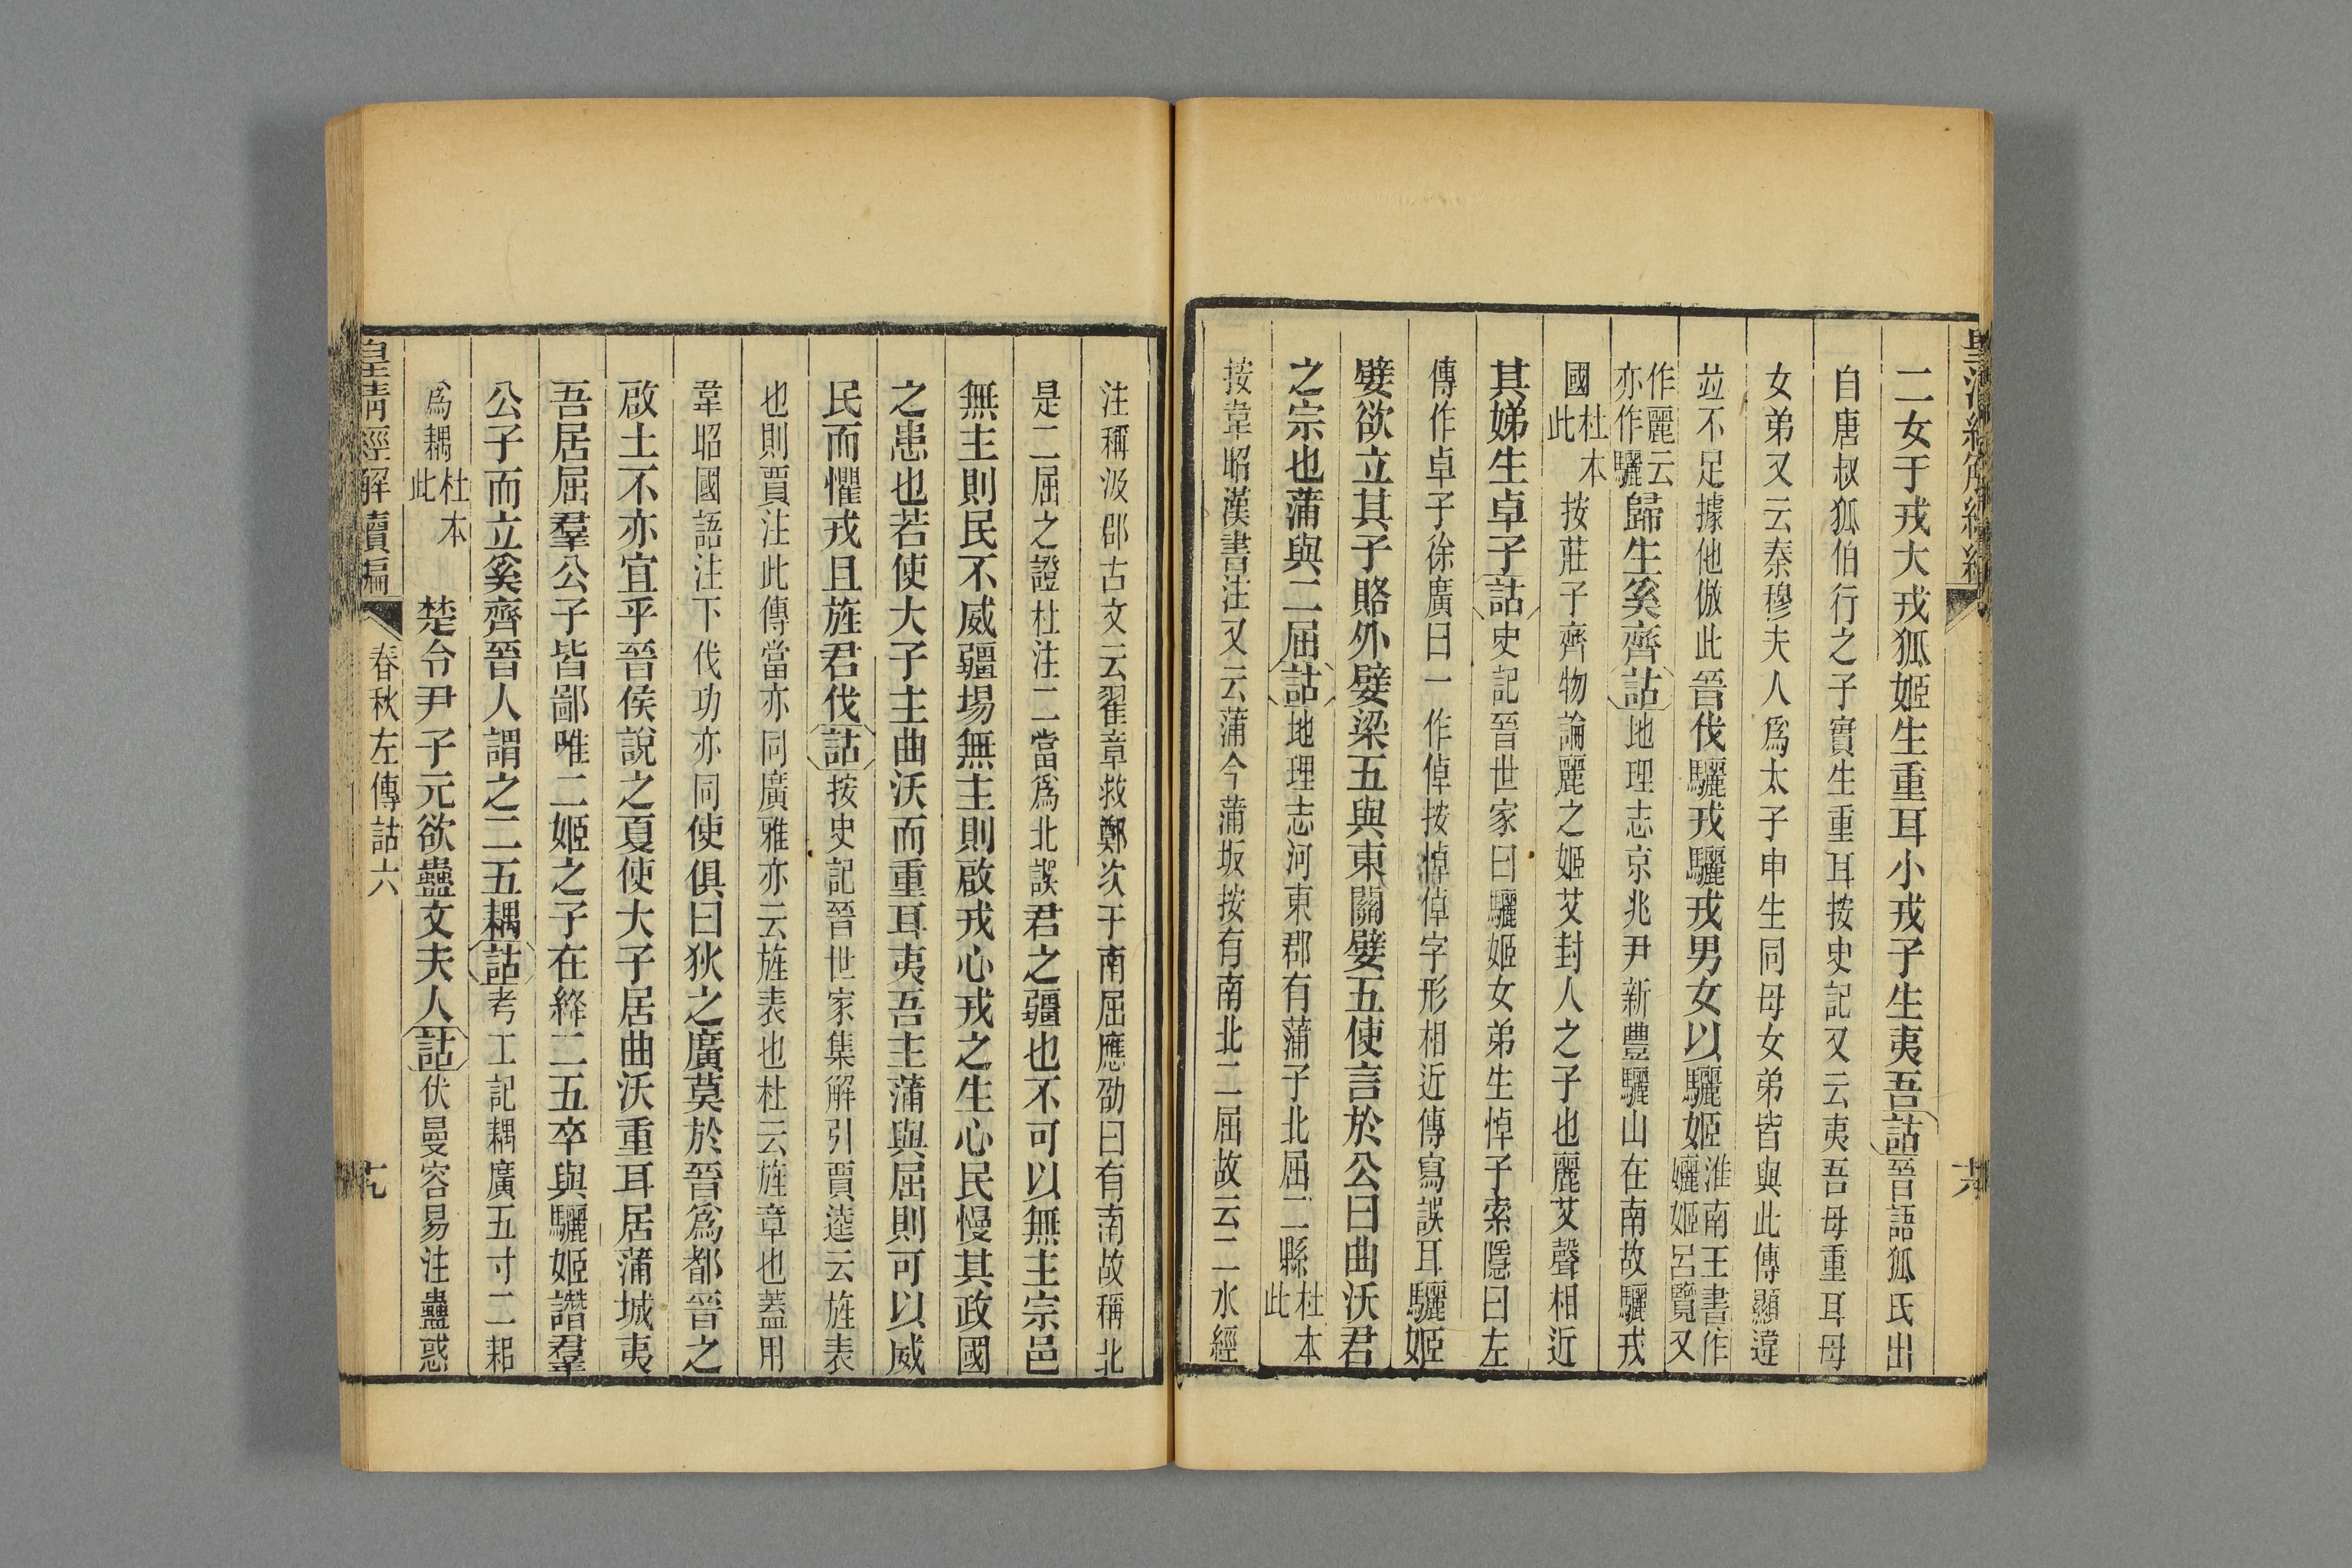 二女于戎大戎狐姬生重耳小戎子生夷吾詁晉語狐氏出
自唐叔狐伯行之子實生重耳按史記又云夷吾母重耳母
女弟又云秦穆夫人爲太子申生同母女弟皆與此傳顯違
竝不足據他倣此晉伐驪戎驪戎男女以驪姬淮南王書作孋姬呂覽又
作麗云亦作驪歸生奚齊詁地理志京兆尹新豐驪山在南故驪戎
國杜本此按莊子齊物論麗之姬艾封人之子也麗艾聲相近
其娣生卓子詁史記晉世家曰驪姬女弟生悼子索隱曰左
傳作卓子徐廣曰一作倬按悼倬字形相近傳寫誤耳驪姬
嬖欲立其子賂外嬖梁五與東關嬖五使言於公曰曲沃君
之宗也蒲與二屈詁地理志河東郡有蒲子北屈二縣杜本此
按韋昭漢書注又云蒲今蒲坂按有南北二屈故云二水經
注稱汲郡古文云翟章救鄭次于南屈應劭曰有南故稱北
是二屈之證杜注二當爲北誤君之疆也不可以無主宗邑
無主則民不威疆場無主則啟戎心戎之生心民慢其政國
之患也若使大子主曲沃而重耳夷吾主蒲與屈則可以威
民而懼戎且旌君伐詁按史記晉世家集解引賈逵云旌表
也則賈注此傳當亦同廣雅亦云旌表也杜云旌章也蓋用
韋昭國語注下伐功亦同使俱曰狄之廣莫於晉爲都晉之
啟土不亦宜乎晉侯說之夏使大子居曲沃重耳居蒲城夷
吾居屈羣公子皆鄙唯二姬之子在絳二五卒與驪姬譖羣
公子而立奚齊晉人謂之二五耦詁考工記耦廣五寸二耜
爲耦杜本此楚令尹子元欲蠱文夫人詁伏曼容易注蠱惑
皇清經解續編
春秋左傳詁六